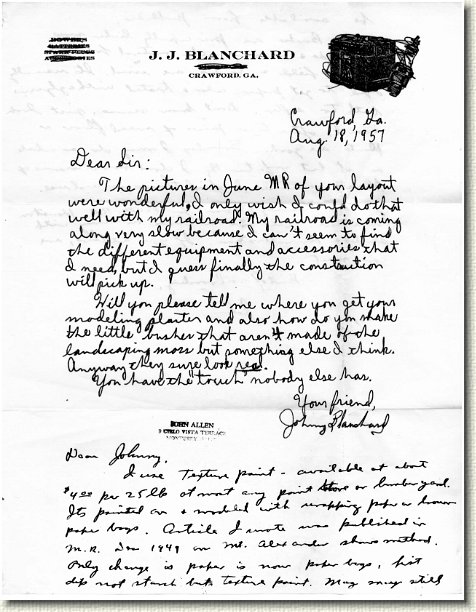 DOWSER
BATTERIES
SPARK PLUGS
ACCESSORIES
J. J. BLANCHARD
CRAWFORD, GA.
Crawford, Ga.
Aug. 18, 1957
Dear Sir:
The pictures in June MR of your layout
were wonderful, I only wish I could do that
well with my railroad. My railroad is coming
along very slow because I can't seem to find
the different equipment and accessories that
I need, but I guess finally the constuction
will pick up.
Will you please tell me where you get your
modeling plaster and also how do you make
the little bushes that aren't made of the
landscaping moss but something else I think.
Anyway they sure look real.
You have the "touch" nobody else has.
Your friend,
Johnny Blanchard
JOHN ALLEN
9 CIELO VISTA TERRACE
MONTEREY
Dear Johnny,
I use Texture paint - available at about
$4.00 per 25 lb at most any paint store or lumber yard.
Its painted on & modeled with wrapping paper or brown
paper bags. Article I wrote was published in
M.R. Dec 1949 on Mt. Alexander shows method.
Only change is paper is now paper bags, first
dip not starch but texture paint. May may still